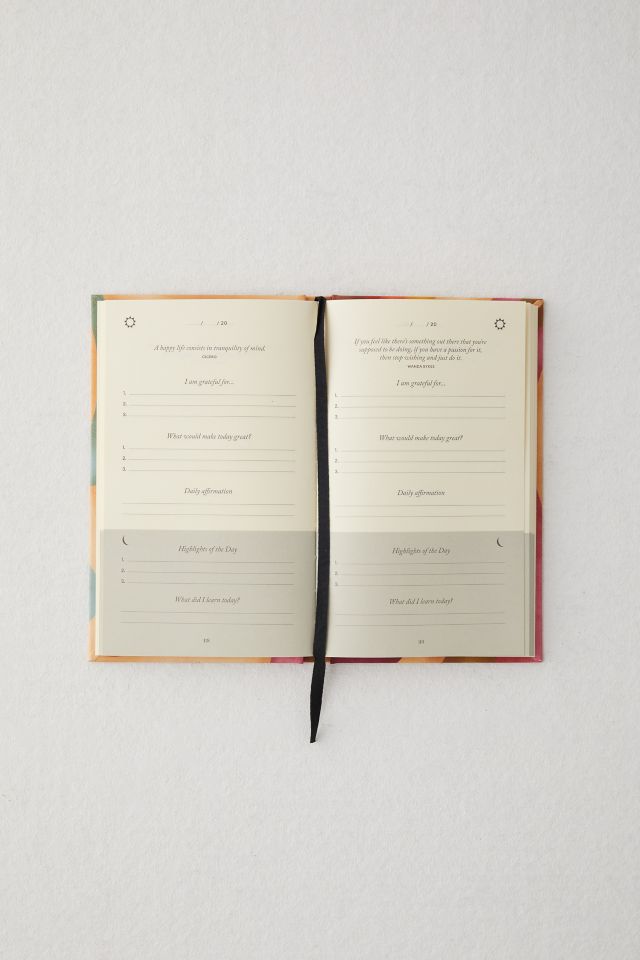 / / 20
A happy life consists in tranquility of mind.
CICERO
I am grateful for...
1.
2.
3.
What would make today great?
1.
2.
3.
Daily affirmation
Highlights of the Day
1.
2.
3.
What did I learn today?
/ / 20
If you feel like there's something out there that you're
supposed to be doing, if you have a passion for it,
then stop wishing and just do it.
WANDA SYKES
I am grateful for...
1.
2.
3.
What would make today great?
1.
2.
3.
Daily affirmation
Highlights of the Day
1.
2.
3.
What did I learn today?